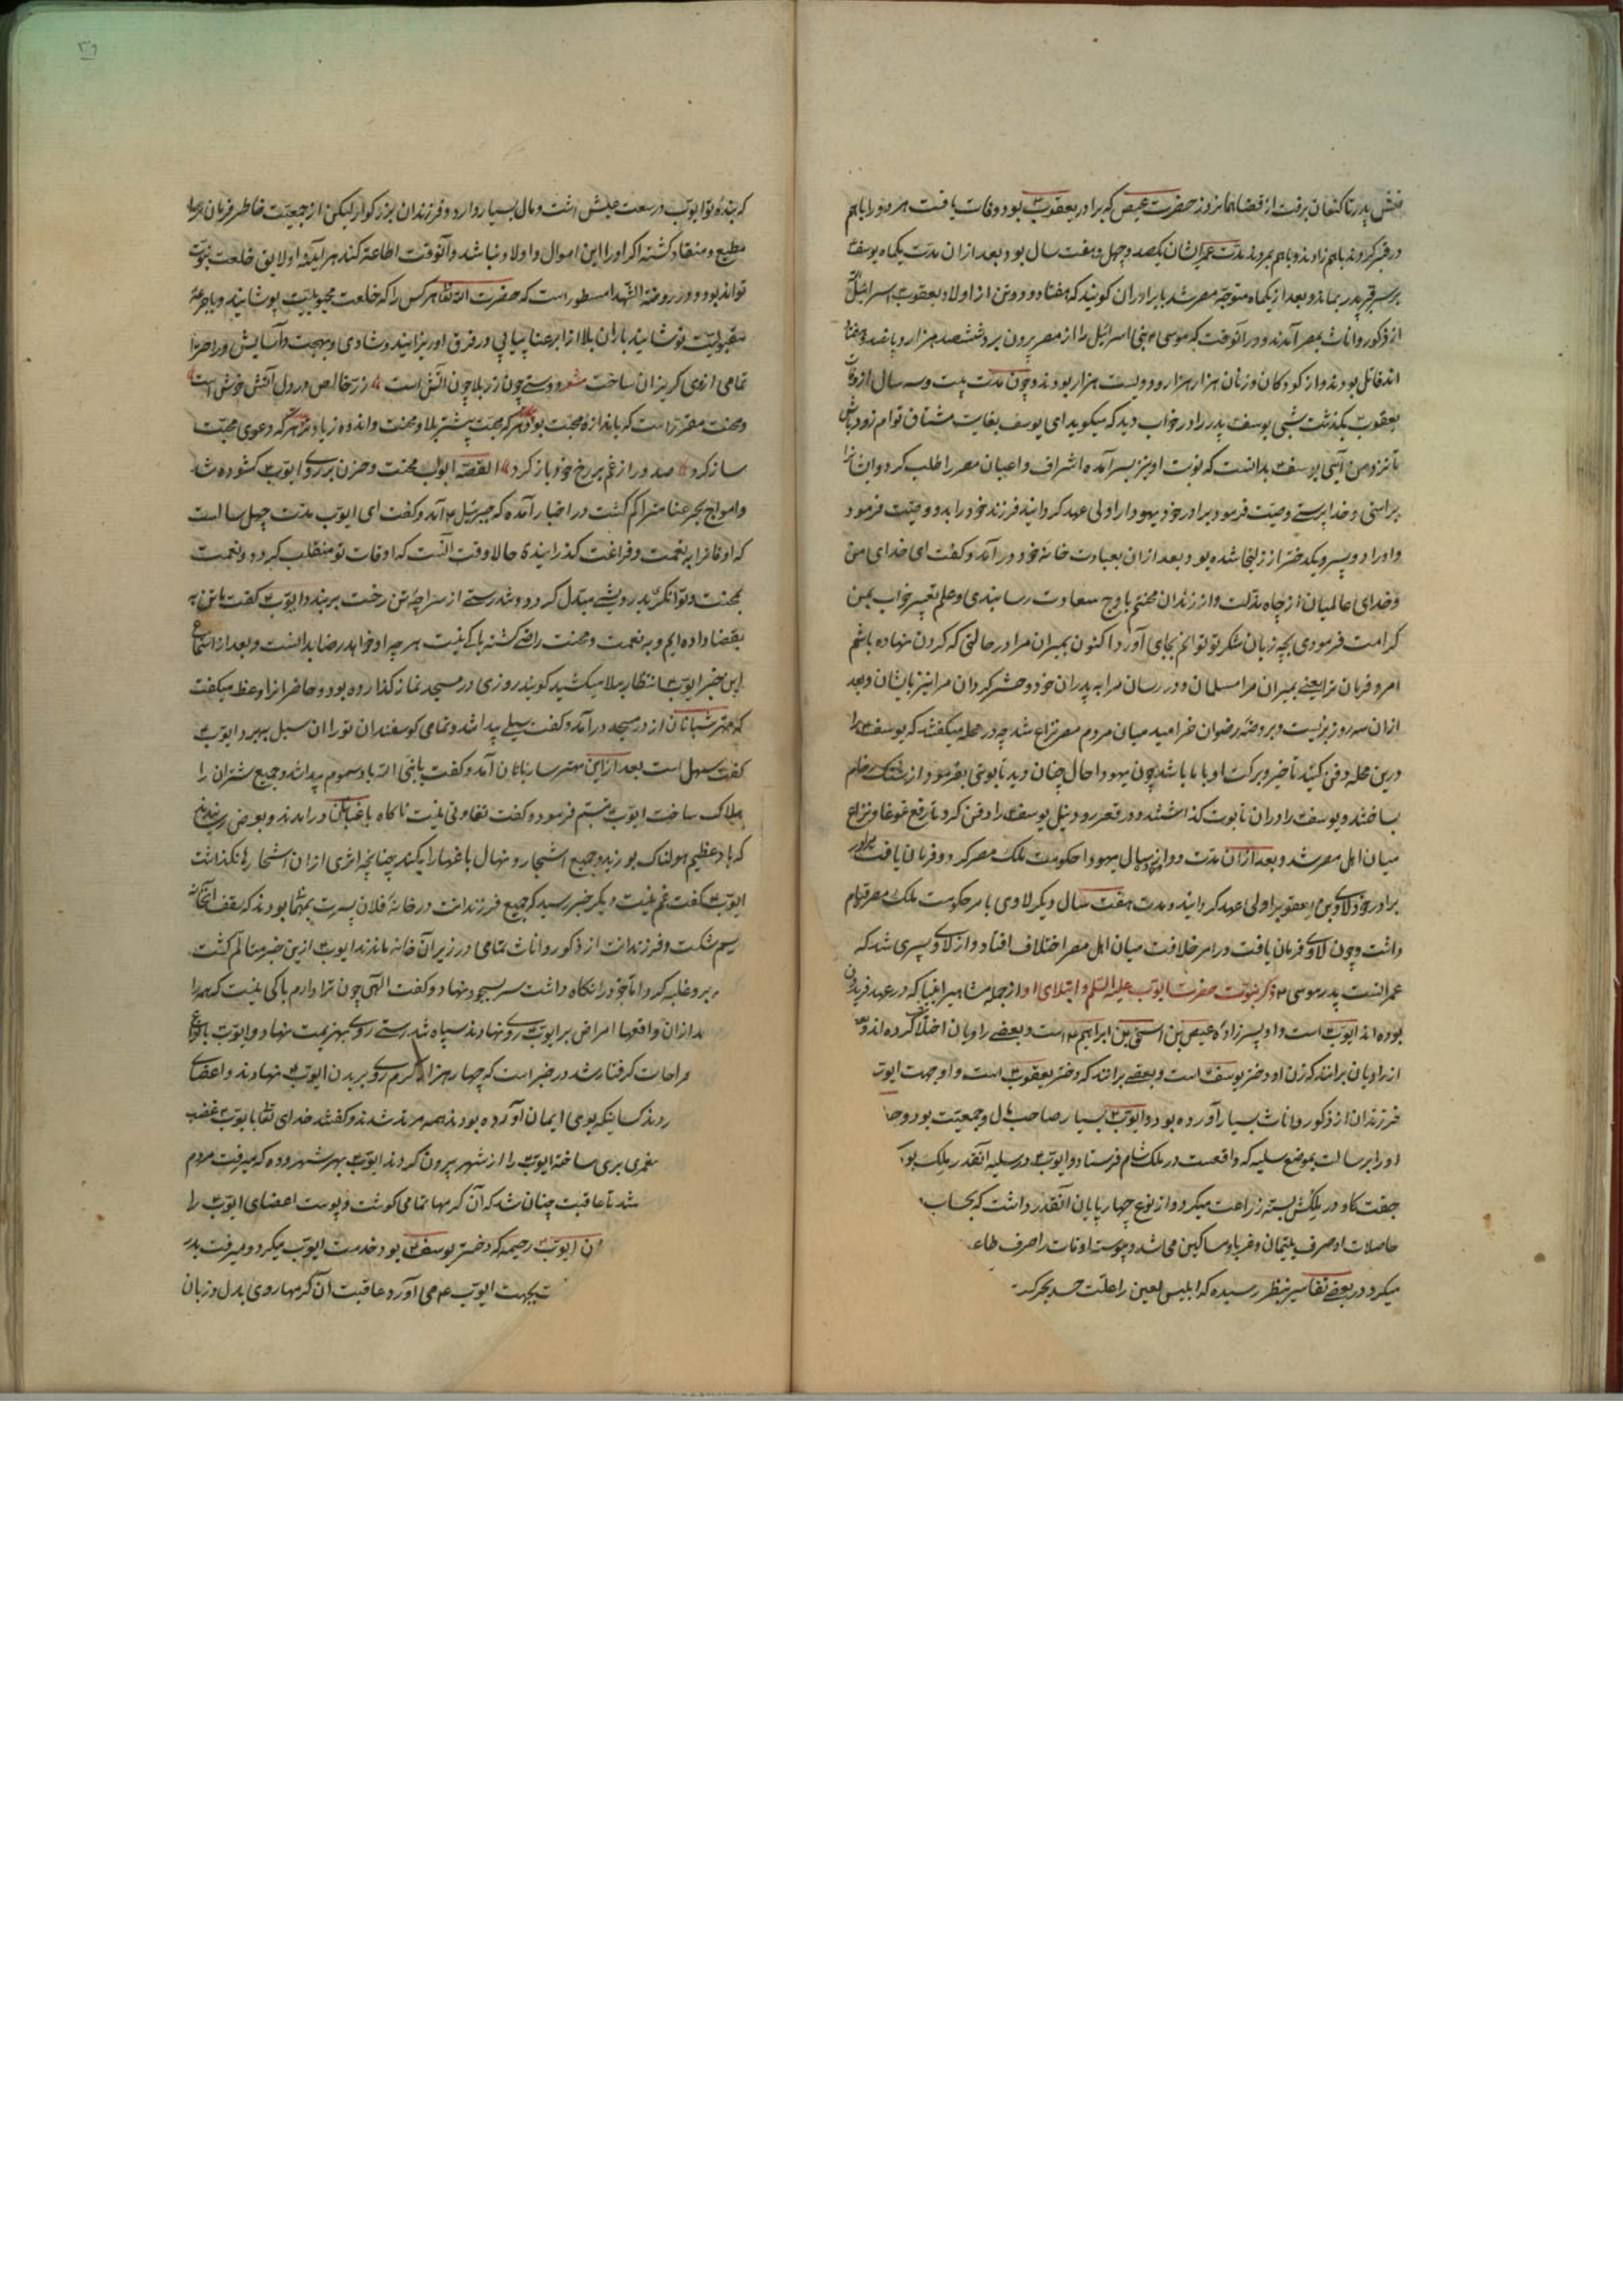 نعش پدر تا کنعان برفت از قضا همانروز حضرت عیص که برادر یعقوب بود وفات یافت هر دو را باهم
در قبر کردند باهم زادند و باهم بمردند مدت عمر ایشان یکصد و چهل و هفت سال بود بعد ازان مدت یکماه یوسف
بر سر قبر پدر بماند و بعد از یکماه متوجه مصر شد با برادران گویند که هفتاد و دو تن از اولاد یعقوب اسرائیل
از ذکور و اناث بمصر آمدند و در آنوقت که موسی بنی اسرائیل را از مصر بیرون برد ششصد هزار و پانصد و هفتاد
اند قاتل بودند و از کودکان و زنان هزار هزار و دویست هزار بودند و چون مدت بیست و سه سال از وفات
یعقوب بگذشت شبی یوسف پدر را در خواب دید که میگوید ای یوسف بغایت مشتاق توام زود باش
تا نزد من آیی یوسف بدانست که نوبت او نیز بسر آمده اشراف و اعیان مصر را طلب کرد و ایشان را
براستی و خداپرستی وصیت فرمود برادر خود یهودا را ولی عهد گردانید فرزند خود را بدو وصیت فرمود
و او را دو پسر و یکدختر از زلیخا شده بود و بعد ازان بعبادت خانه خود در آمد و گفت ای خدای من
و خدای عالمیان از چاه مذلت و از زندان محنتم باوج سعادت رسانیدی و علم تعبیر خواب بمن
کرامت فرمودی بچه زبان شکر تو توانم بجای آورد اکنون بمیران مرا در حالتی که گردن نهاده باشم
امر و فرمان ترا یعنی بمیران مرا مسلمان و در رسان مرا به پدران خود و حشر گردان مرا نیز بایشان و بعد
ازان سه روز بزیست و بروضه رضوان خرامید میان مردم مصر نزاع شد چه در محله میگفتند که یوسف را
درین محله دفن کنید تا خیر و برکت او با ما باشد چون یهودا حال چنان دید تابوتی بفرمود از سنک رخام
ساختند و یوسف را دران تابوت گذاشتند و در قعر رود نیل یوسف را دفن کرد تا رفع غوغا و نزاع
میان اهل مصر شد و بعد ازان مدت دوازده سال یهودا حکومت ملک مصر کرد و فرمان یافت
برادر خود لاوی بن یعقوب را ولی عهد گردانید و مدت هفت سال دیگر لاوی بامر حکومت ملک مصر قیام
داشت و چون لاوی فرمان یافت در امر خلافت میان اهل مصر اختلاف افتاد و از لاوی پسری شد که
عمرانست پدر موسی ذکر نبوت حضرت ایوب علیه السلم و ابتلای او از جمله مشاهیر انبیا که در عهد فریدون
بوده اند ایوب است و او پسرزاده عیص بن اسحق بن ابراهیم است و بعضی راویان اختلاف کرده اند و بعضی
از راویان برانند که زن او دختر یوسف است و بعضی برانند که دختر یعقوب است و او جهت ایوب
فرزندان از ذکور و اناث بسیار آورده بود و ایوب بسیار صاحب مال و جمعیت بود و حق
او را برسالت بموضع سلیه که واقعست در ملک شام فرستاد و ایوب در سلیه آنقدر ملک بود
جفت کاو در ملکش بسته زراعت میکرد و از نوع چهارپایان آنقدر داشت که بحساب
حاصلات او صرف یتیمان و غربا و مساکین می شد و پیوسته اوقات را صرف طاعت
میکرد در بعضی تفاسیر بنظر رسیده که ابلیس لعین را علت حسد بحرکت
که بنده تو ایوب در سعت عیش است و مال بسیار دارد و فرزندان بزرکوار لیکن از جمعیت خاطر فرمان ترا
مطیع و منقاد گشته اکر او را این اموال و اولاد نباشد و آنوقت اطاعت کند هر آینه او لایق خلعت نبوت
تواند بود و در روضة الشهدا مسطور است که حضرت الله تعالی هر کس را که خلعت محبوبیت پوشانید و یا جرعهٔ
مقبولیت نوشانید باران بلا از ابر عنا پیاپی در فرق او ریزانید و شادی و بهجت و آسایش و راحت را
تمامی از وی گریزان ساخت شعر دوستی چون زر بلا چون آتش است زر خالص در دل آتش خوش است
و محنت مقرر است که باندازه محبت بود هر که محبت بیشتر بلا و محنت و اندوه زیادتر هر که دعوی محبت
ساز کرد صد در از غم بر رخ خود باز کرد القصه ابواب محنت و حزن بر روی ایوب گشوده شد
و امواج بحر عنا متراکم گشت در اخبار آمده که جبرئیل آمد و گفت ای ایوب مدت چهل سالست
که اوقات را به نعمت و فراغت گذرانیدهٔ حالا وقت آنست که اوقات تو منقلب گردد و نعمت
بمحنت و توانگری بدرویشی مبدل گردد و تندرستی از سراچه تن رخت بربندد ایوب گفت ما تن به
بقضا داده ایم و به نعمت و محنت راضی گشته باکی نیست هر چه او خواهد رضا بدانست و بعد از استماع
این خبر ایوب انتظار بلا میکشید گویند روزی در مسجد نماز گذارده بود و حاضرانرا وعظ میگفت
که مهتر شبانان از در مسجد در آمد و گفت سیلی پیدا شد و تمامی گوسفندان تو را آن سیل ببرد ایوب
گفت سهل است بعد ازین مهتر ساربانان آمد و گفت یا نبی الله باد سموم پیدا شد و جمیع شتران را
هلاک ساخت ایوب تبسم فرمود و گفت تفاوتی نیست ناکاه باغبانان در آمدند و بعرض رسانیدند
که باد عظیم هولناک بوزید و جمیع اشجار و نهال باغها را بکند چنانچه اثری ازان اشجار ها نکذاشت
ایوب گفت غم نیست دیگر خبر رسید که جمیع فرزندانت در خانه فلان پسرت بمهمانی بودند که سقف آنخانه
بهم شکست و فرزندانت از ذکور و اناث تمامی در زیر آن خانه ماندند ایوب ازین خبر متالم گشت
برو غلبه کرد و اما خود را نکاه داشت سر بسجود نهاد و گفت الهی چون ترا دارم باکی نیست که همه را
بعد ازان واقعها امراض بر ایوب روی نهادند سپاه تندرستی روی بهزیمت نهاد و ایوب بانواع
جراحات گرفتار شد در خبر است که چهار هزار کرم روی بر بدن ایوب نهادند و اعضای
ردند کسانیکه بوی ایمان آورده بودند همه مرتد شدند و گفتند خدای تعالی با ایوب غضب
ساخته ایوب را از شهر بیرون کردند ایوب بهر شهر و ده که میرفت مردم
شد تا عاقبت چنان شد که آن کرمها تمامی گوشت و پوست اعضای ایوب را
زن ایوب رحیمه که دختر یوسف بود خدمت ایوب میکرد و میرفت بدر
بجهت ایوب می آورد عاقبت آن کرمها روی بدل و زبان